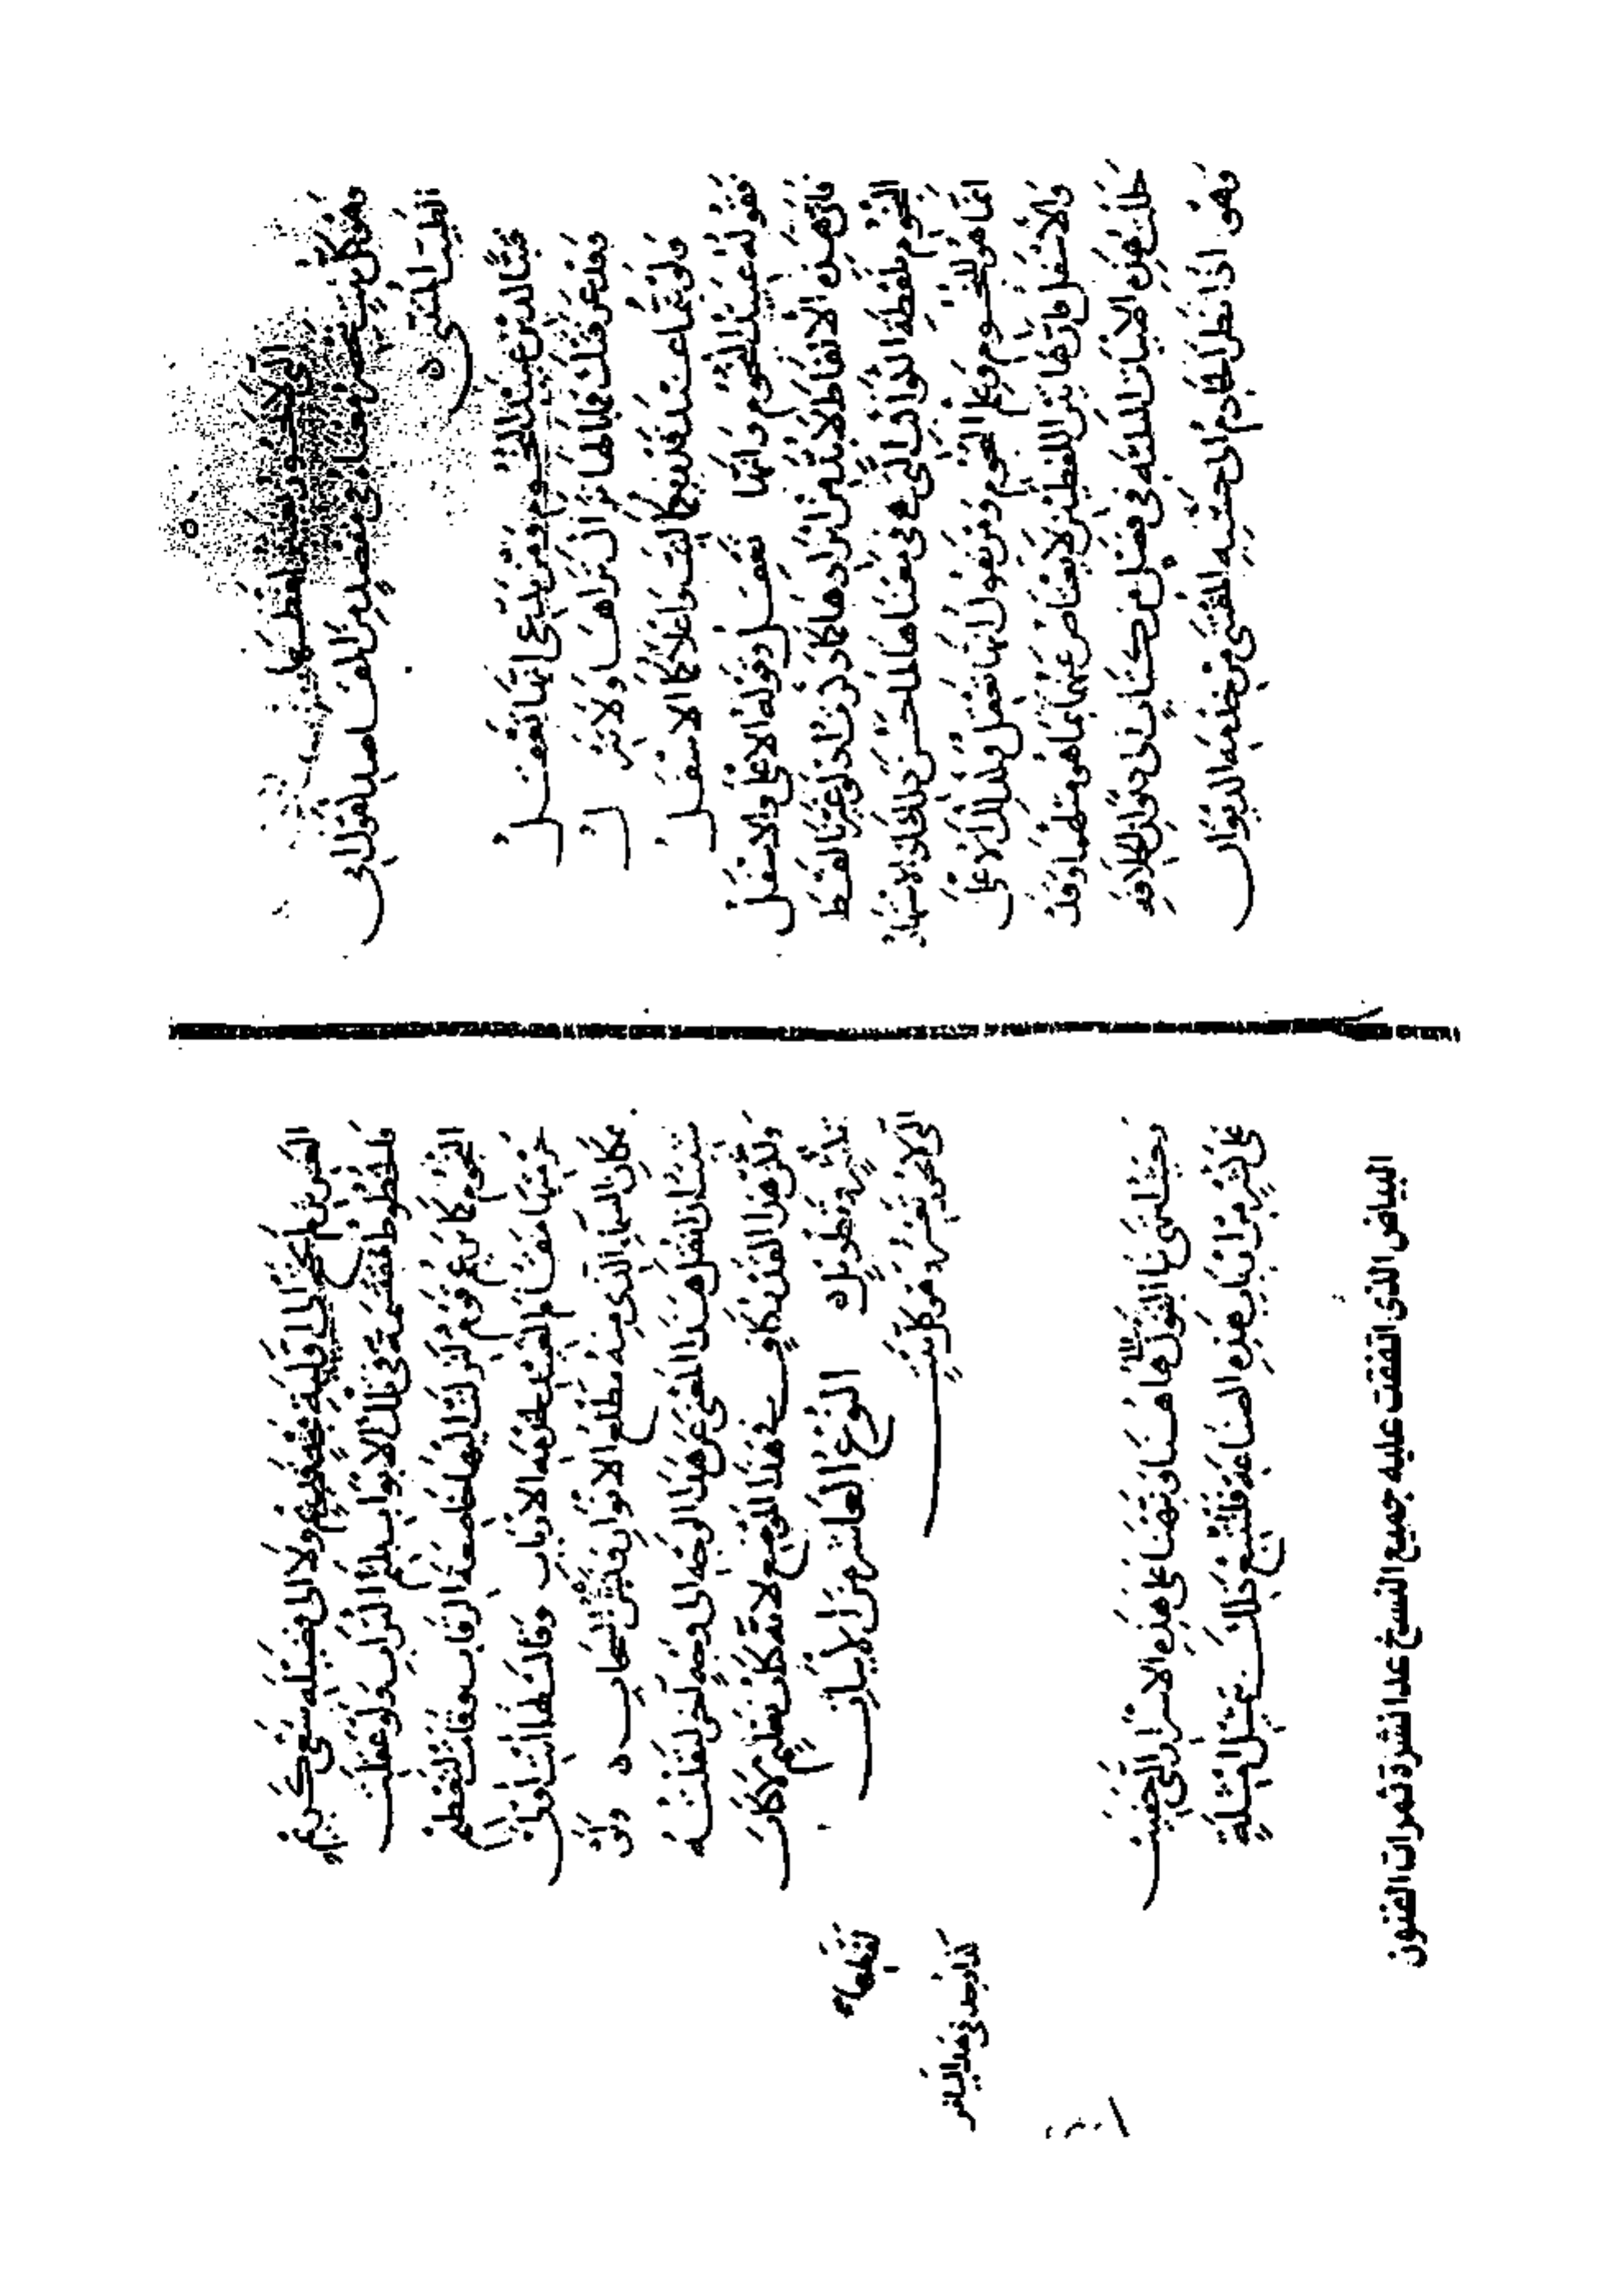 التي لا يجوز تغيير لفظها
وهو كل بيت يتضمن معناه في مقصد من المقاصد كقول ابي
الطيب المتنبي
فتبًّا لدين عبيد النجوم ومن يدعي انها تعقل
وقد عرفتك فما بالها تراك تراها ولا تنزل
ولو بتما عند قدريكما لبت واعلاكما الاسفل
فقوله عبيد النجوم وانها تعقل وقوله الاعلى والاسفل
فان هذه الالفاظ لا بد من ايرادها كما ذكرنا اذ لو غيرنا لفظ
النجوم بلفظه الدراري التي هي في معناها لما حسن ذلك لان الاشتهار
انما هو للنجوم وعلم النجوم ومن يقول انها تعقل وكذلك الاعلى
والاسفل فان هاتين اللفظتين لا يعتاض عنهما بما هو مثلهما وقد
حللت هذه الابيات الثلثه في فصل من كتاب الى ديوان الخلافه
وهو اذا نظر الخادم الى من خدمه الديوان
العزيز لم يحتج الى اولية تعظيم ولا الى فضيله سعي كريم
فالحظوظ مقسمة في تلك الابواب بلثم التراب ولو عقلت
النجوم كما يزعم قوم لنزلت اليها خاضعة الرقاب وقامت لتعظيم
حرمتها مقام العبيد لحرمه الارباب وقالت لها انت اولى
بمكان السماء الذي منه مطلع الانوار ونشر السحاب ولو
شئت ان انقل هذا المعنى عن هذا الوجه الى وجه اخر لفعلته
ولكن هذا القدر كاف في هذا الموضع لانه كان
وتطويل النوع العاشر من الابيات
التي لا يجوز تغيير وهو كل بيت
لفظها
كذا وجد في هذا البياض
وحيث انتهى بنا القول هاهنا ونبهنا على هذه الاسرار التي خفيت
على كثير من ارباب هذه الصناعة فلنتبع ذلك بتمثيل امثلة
البياض الذى اتفقت عليه جميع النسخ عدا نشرة ثمرات الفنون